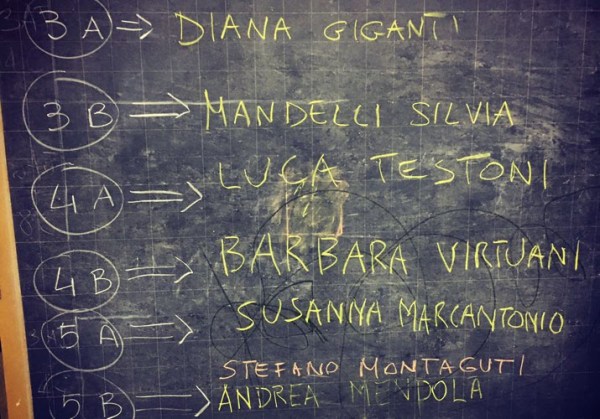 3 A ⇒ DIANA GIGANTI
3 B ⇒ MANDELLI SILVIA
4 A ⇒ LUCA TESTONI
4 B ⇒ BARBARA VIRTUANI
5 A ⇒ SUSANNA MARCANTONIO
STEFANO MONTAGUTI
5 B ⇒ ANDREA MENDOLA